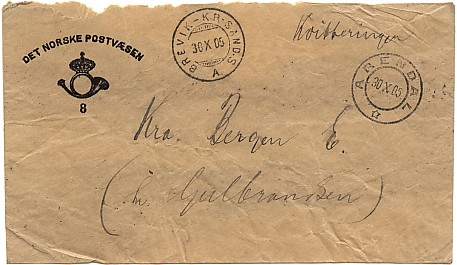 DET NORSKE POSTVÆSEN
8
BREVIK-KR.SAND.S
30 X 05
A.
Kvitteringer
ARENDAL
30 X 05
Kra. Bergen E.
(hr. Gulbrandsen)